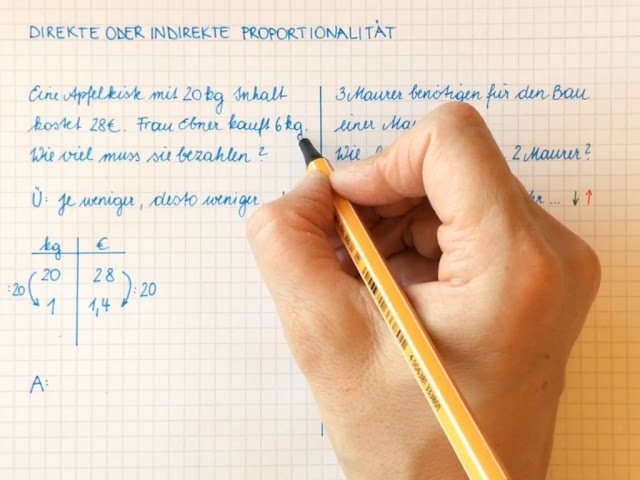 DIREKTE ODER INDIREKTE PROPORTIONALITÄT
Eine Apfelkiste mit 20 kg Inhalt
kostet 28€. Frau Ebner kauft 6 kg.
Wie viel muss sie bezahlen?
Ü: je weniger, desto weniger
kg €
20 28
:20 :20
1 1,4
A:
3 Maurer benötigen für den Bau
einer
2 Maurer?
... ↓ ↑